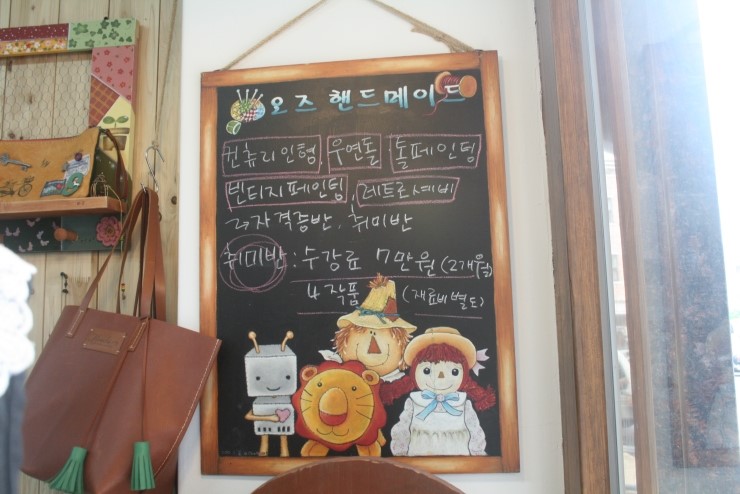 오즈 핸드메이드
컨츄리인형, 우연돌 돌페인팅
빈티지페인팅, 레트로셰비
자격증반, 취미반
취미반 : 수강료 7만원 (2개월)
4작품 (재료비별도)